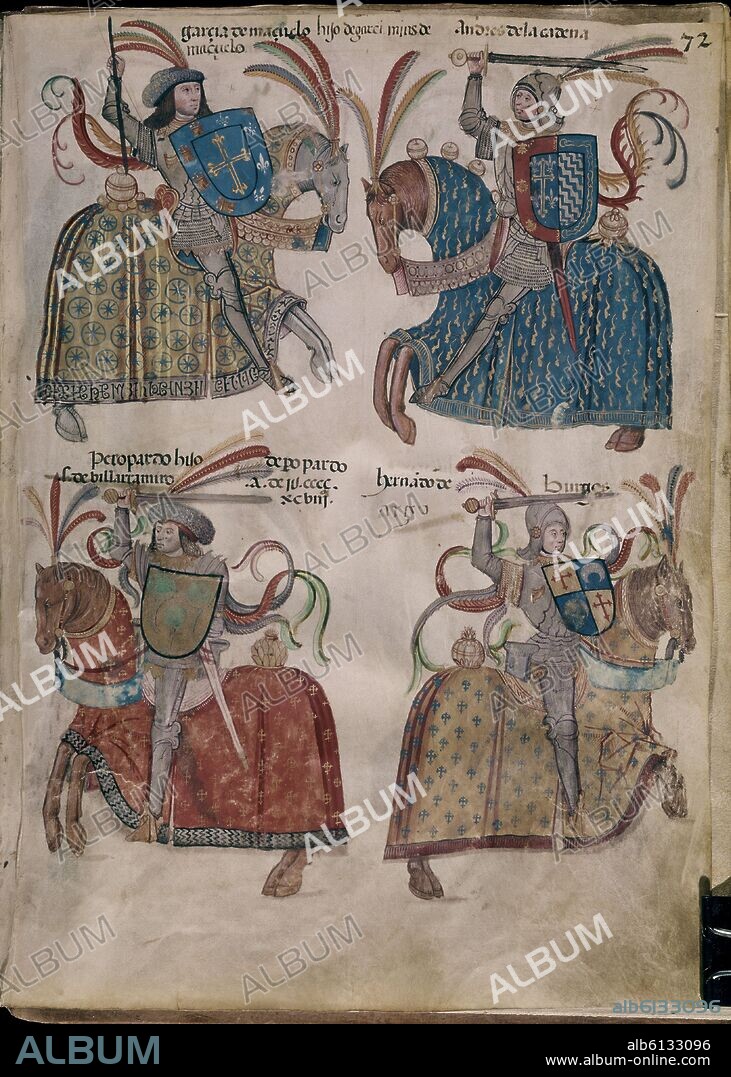 garcia de maçuelo hijo de garci mĩns de
maçuelo
Andres de la cadena
72
Pero pardo hijo
de po pardo
de villarramiro
A. de iu. cccc.
xcviij.
hernãdo de
burgos
ALBUM
alb6133096
ALBUM
alb6133096
www.album-online.com